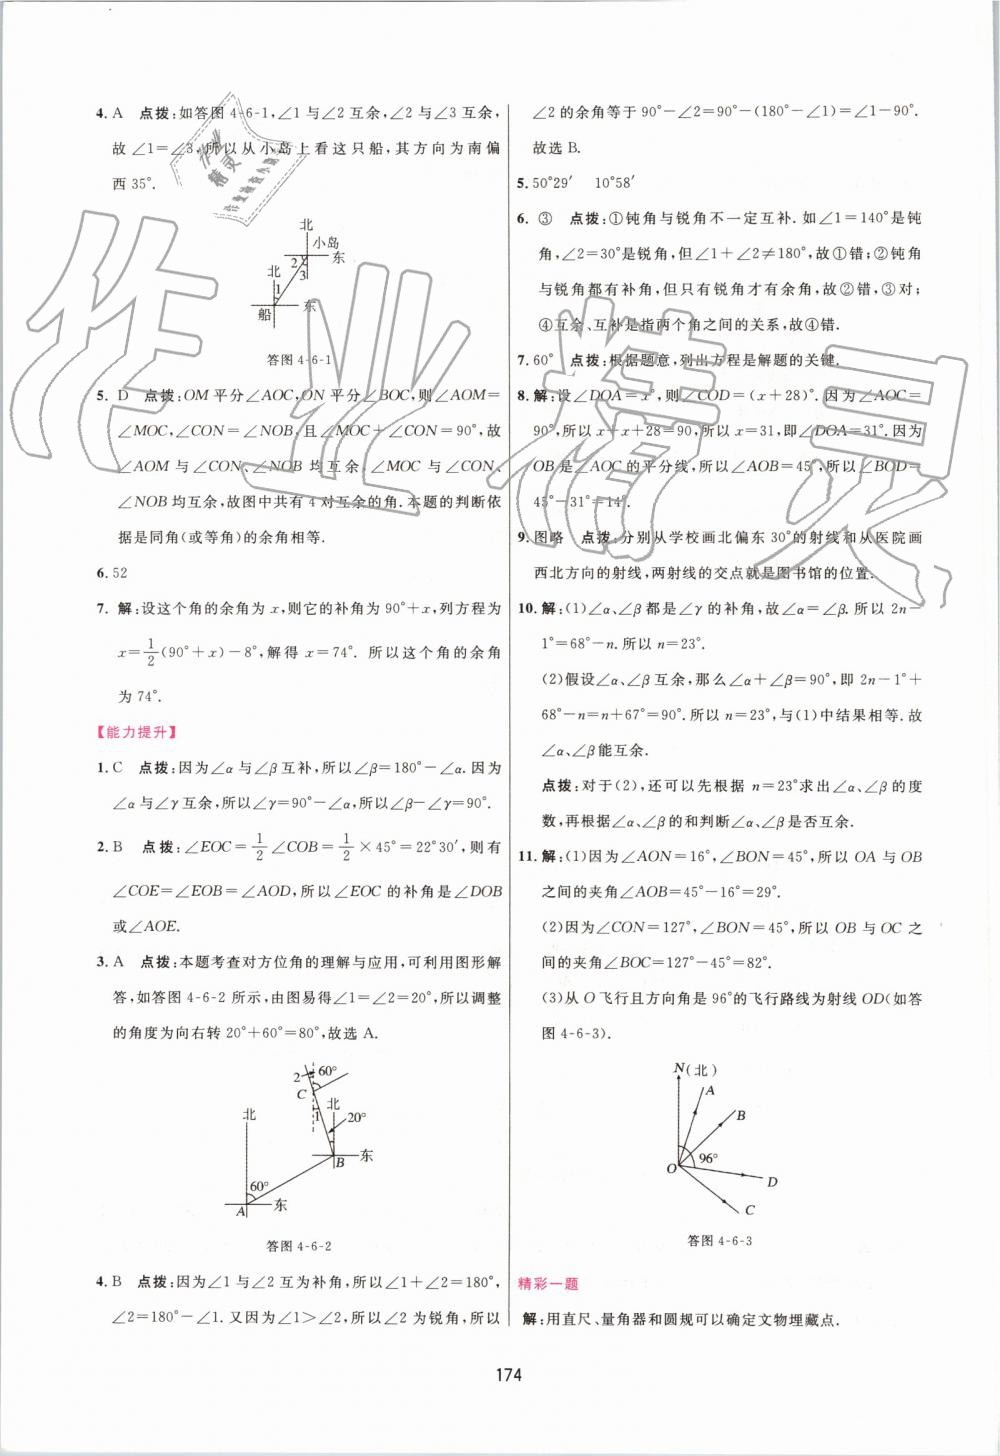 4. A 点拨:如答图 4-6-1,∠1 与∠2 互余,∠2 与∠3 互余,
故∠1=∠3,所以从小岛上看这只船,其方向为南偏
西35°.
北
小岛
2
东
北
3
1
船
东
答图 4-6-1
5. D 点拨:OM平分∠AOC,ON平分∠BOC,则∠AOM=
∠MOC,∠CON=∠NOB.且∠MOC+∠CON=90°,故
∠AOM 与∠CON、∠NOB 均互余、∠MOC 与∠CON、
∠NOB均互余,故图中共有 4 对互余的角.本题的判断依
据是同角(或等角)的余角相等.
6. 52
7. 解:设这个角的余角为 x,则它的补角为 90°+x,列方程为
x=1/2(90°+x)-8°,解得 x=74°. 所以这个角的余角
为 74°.
【能力提升】
1. C 点拨:因为∠α与∠β互补,所以∠β=180°-∠α.因为
∠α与∠γ互余,所以∠γ=90°-∠α,所以∠β-∠γ=90°.
2. B 点拨:∠EOC=1/2∠COB=1/2×45°=22°30′,则有
∠COE=∠EOB=∠AOD,所以∠EOC 的补角是∠DOB
或∠AOE.
3. A 点拨:本题考查对方位角的理解与应用,可利用图形解
答,如答图 4-6-2 所示,由图易得∠1=∠2=20°,所以调整
的角度为向右转 20°+60°=80°,故选 A.
2
60°
C
北
北
1
20°
B
东
60°
A
东
答图 4-6-2
4. B 点拨:因为∠1 与∠2 互为补角,所以∠1+∠2=180°,
∠2=180°-∠1. 又因为∠1>∠2,所以∠2 为锐角,所以
∠2 的余角等于 90°-∠2=90°-(180°-∠1)=∠1-90°.
故选 B.
5. 50°29′ 10°58′
6. ③ 点拨:①钝角与锐角不一定互补.如∠1=140°是钝
角,∠2=30°是锐角,但∠1+∠2≠180°,故①错;②钝角
与锐角都有补角,但只有锐角才有余角,故②错,③对;
④互余、互补是指两个角之间的关系,故④错.
7. 60° 点拨:根据题意,列出方程是解题的关键.
8. 解:设∠DOA=x°,则∠COD=(x+28)°.因为∠AOC=
90°,所以 x+x+28=90,所以x=31,即∠DOA=31°.因为
OB是∠AOC的平分线,所以∠AOB=45°,所以∠BOD=
45°-31°=14°.
9. 图略 点拨:分别从学校画北偏东 30°的射线和从医院画
西北方向的射线,两射线的交点就是图书馆的位置.
10. 解:(1)∠α、∠β都是∠γ的补角,故∠α=∠β.所以 2n-
1°=68°-n.所以 n=23°.
(2)假设∠α、∠β互余,那么∠α+∠β=90°,即 2n-1°+
68°-n=n+67°=90°.所以n=23°,与(1)中结果相等.故
∠α、∠β能互余.
点拨:对于(2),还可以先根据 n=23°求出∠α、∠β的度
数,再根据∠α、∠β的和判断∠α、∠β是否互余.
11. 解:(1)因为∠AON=16°,∠BON=45°,所以 OA 与 OB
之间的夹角∠AOB=45°-16°=29°.
(2)因为∠CON=127°,∠BON=45°,所以 OB 与 OC 之
间的夹角∠BOC=127°-45°=82°.
(3)从O飞行且方向角是96°的飞行路线为射线OD(如答
图 4-6-3).
N(北)
A
B
96°
O
D
C
答图 4-6-3
精彩一题
解:用直尺、量角器和圆规可以确定文物埋藏点.
174
作业精灵